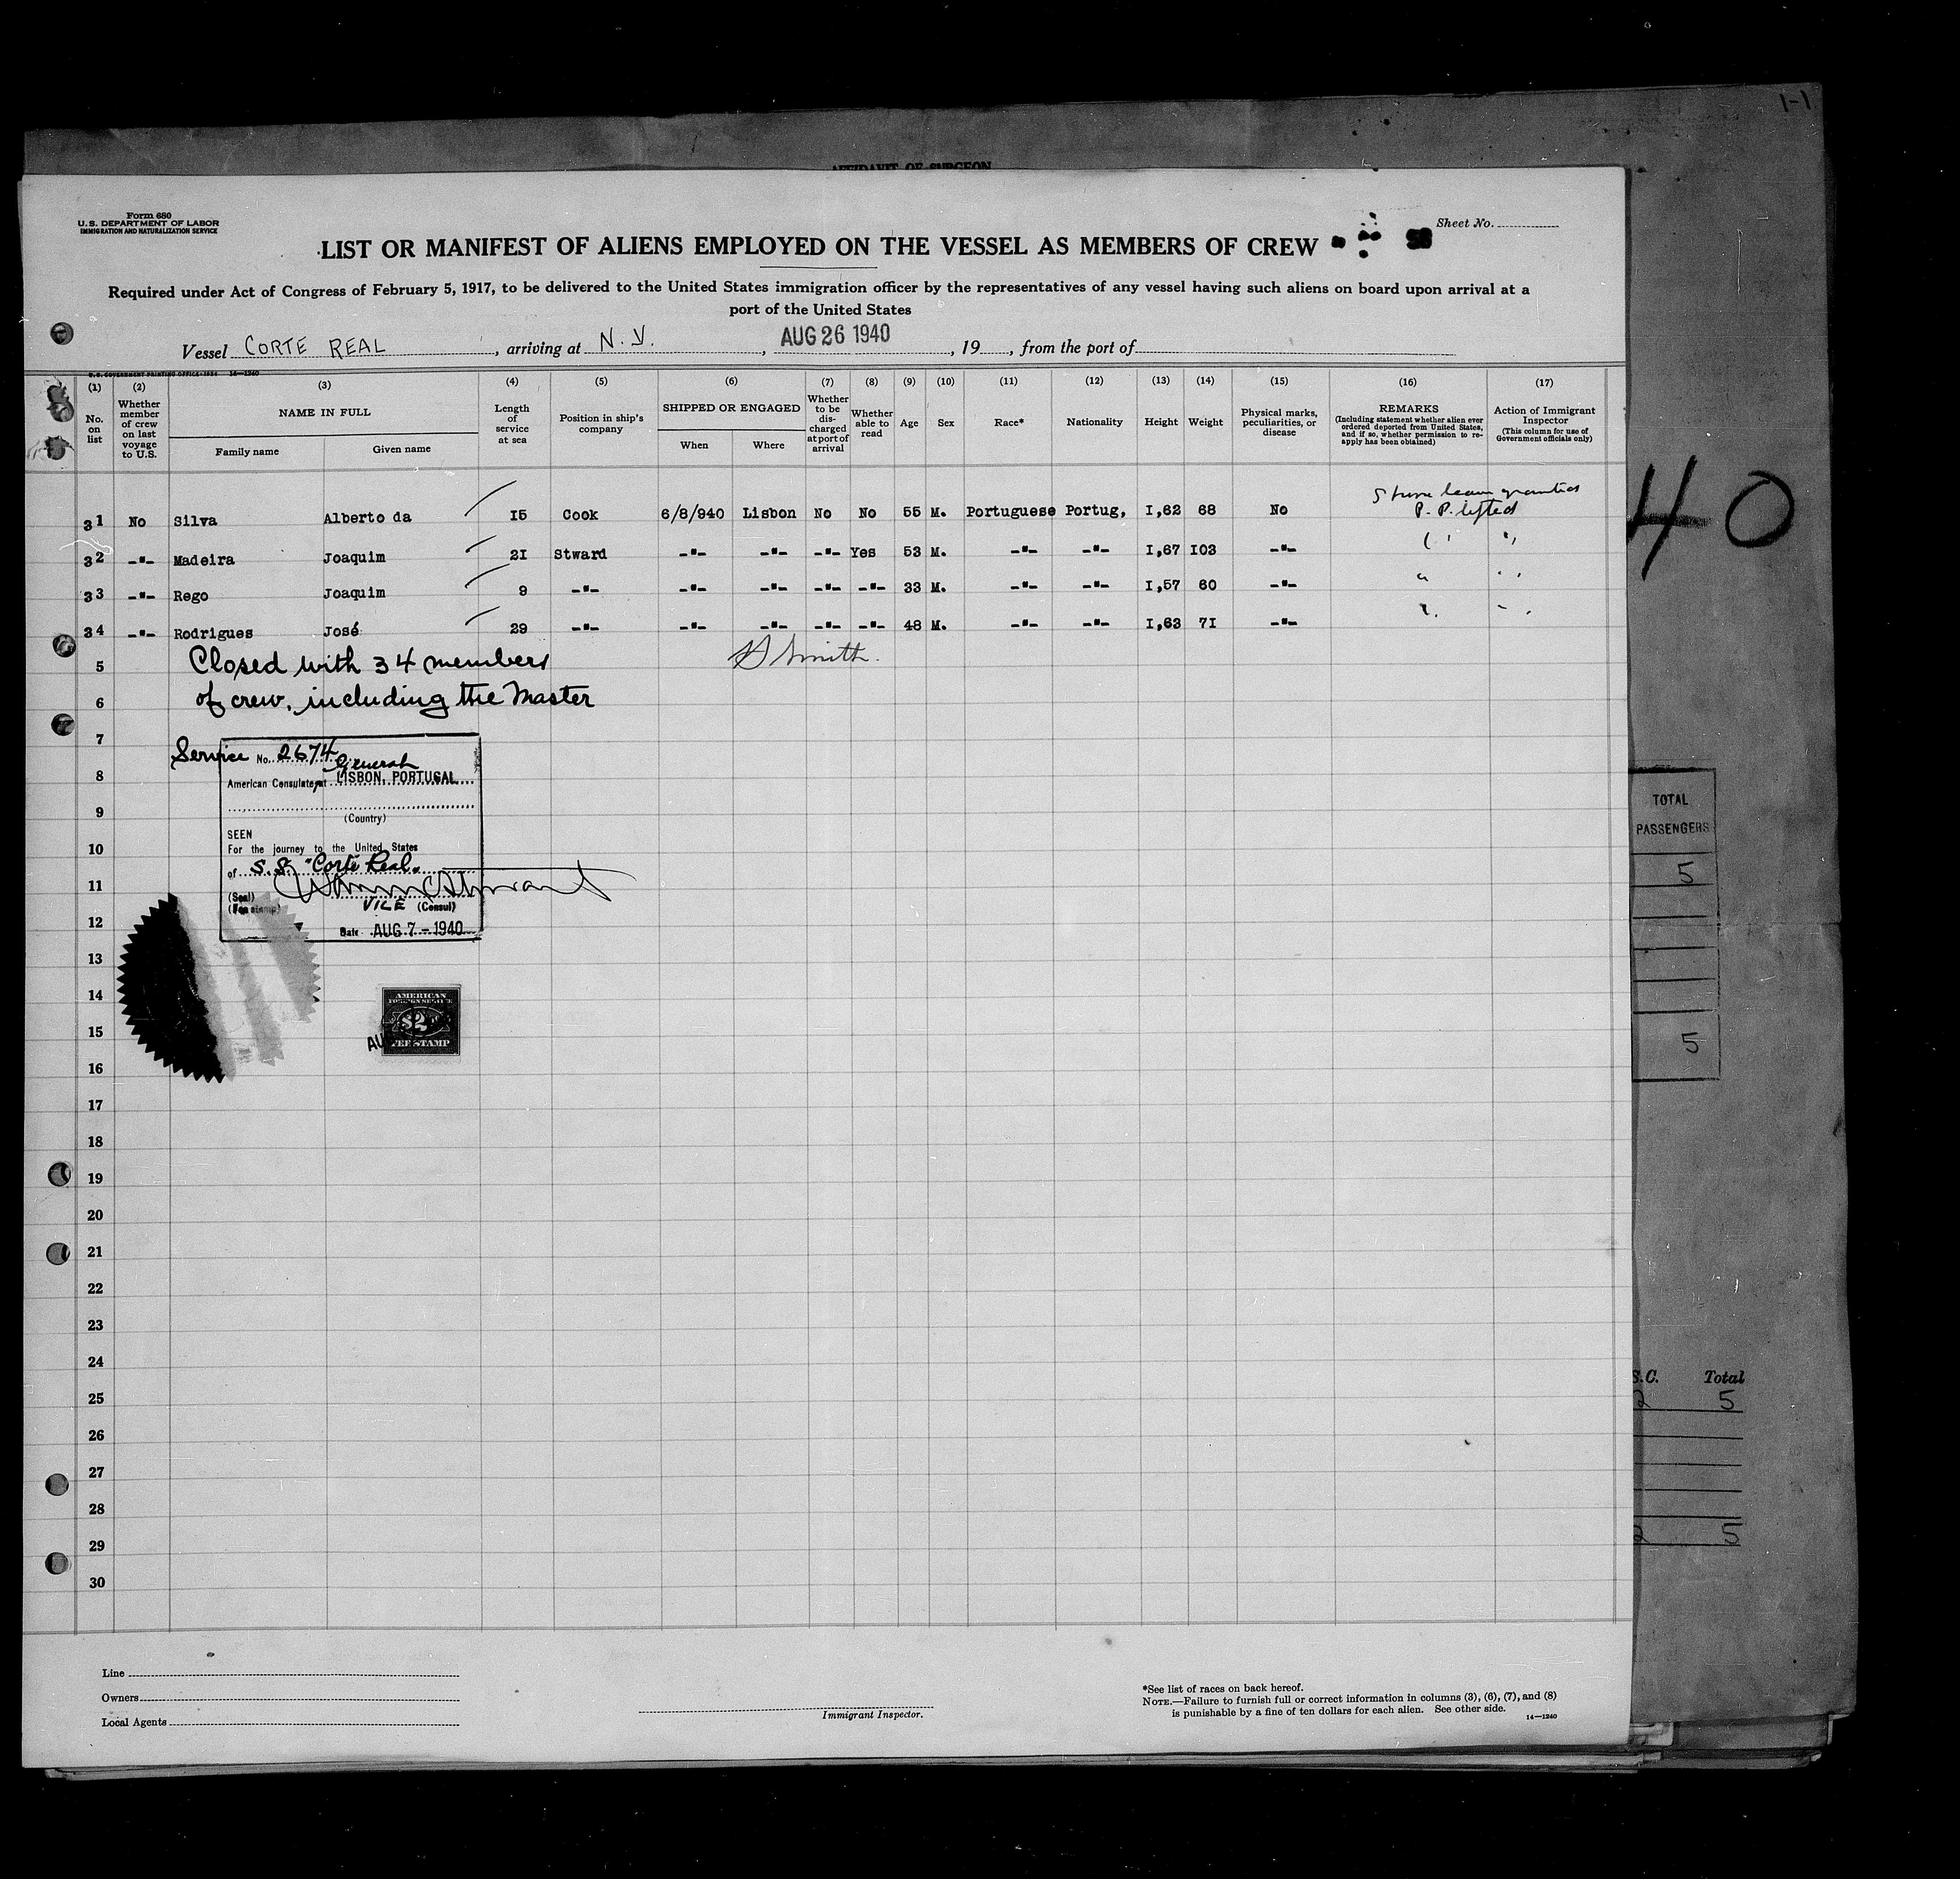 1-1
AFFIDAVIT OF SURGEON
Form 680
U.S. DEPARTMENT OF LABOR
IMMIGRATION AND NATURALIZATION SERVICE
Sheet No.
LIST OR MANIFEST OF ALIENS EMPLOYED ON THE VESSEL AS MEMBERS OF CREW
Required under Act of Congress of February 5, 1917, to be delivered to the United States immigration officer by the representatives of any vessel having such aliens on board upon arrival at a
port of the United States
Vessel CORTE REAL, arriving at N.Y., AUG 26 1940, 19, from the port of
U.S. GOVERNMENT PRINTING OFFICE: 1934 14—1240
(1) No. on list
(2) Whether member of crew on last voyage to U.S.
(3) NAME IN FULL Family name Given name
(4) Length of service at sea
(5) Position in ship's company
(6) SHIPPED OR ENGAGED When Where
(7) Whether to be discharged at port of arrival
(8) Whether able to read
(9) Age
(10) Sex
(11) Race*
(12) Nationality
(13) Height
(14) Weight
(15) Physical marks, peculiarities, or disease
(16) REMARKS (Including statement whether alien ever ordered deported from United States, and if so, whether permission to reapply has been obtained)
(17) Action of Immigrant Inspector (This column for use of Government officials only)
31 No Silva Alberto da 15 Cook 6/8/940 Lisbon No No 55 M. Portuguese Portug, I,62 68 No P.P. lifted
32 -"- Madeira Joaquim 2I Stward -"- -"- -"- Yes 53 M. -"- -"- I,67 I03 -"- " "
33 -"- Rego Joaquim 9 -"- -"- -"- -"- -"- 33 M. -"- -"- I,57 60 -"- " "
34 -"- Rodrigues José 29 -"- -"- -"- -"- -"- 48 M. -"- -"- I,63 7I -"- " "
5 Closed with 34 members Smith.
6 of crew, including the Master
7
Service No. 2674
General
8 American Consulate at LISBON, PORTUGAL
9
(Country)
SEEN
10 For the journey to the United States
of S.S. "Corte Real"
11
(Seal)
(Fee stamp)
VICE (Consul)
12
Date AUG 7 - 1940
13
14 AMERICAN
FOREIGN SERVICE
15 $2
FEE STAMP
16
17
18
19
20
21
22
23
24
25
26
27
28
29
30
Line
Owners
Local Agents
Immigrant Inspector.
*See list of races on back hereof.
NOTE.—Failure to furnish full or correct information in columns (3), (6), (7), and (8)
is punishable by a fine of ten dollars for each alien. See other side.
14—1240
40
TOTAL
PASSENGERS
5
5
S.C. Total
2 5
2 5